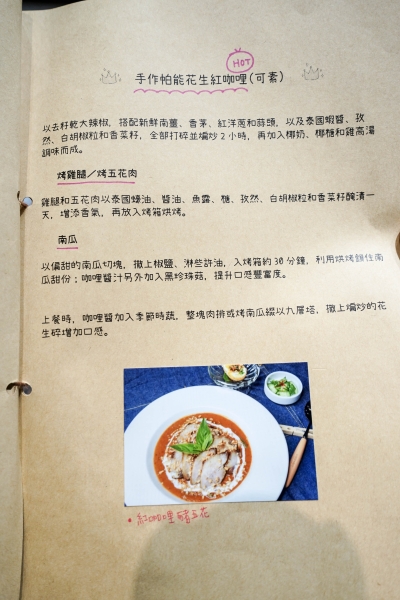 HOT
手作帕能花生紅咖哩(可素)
以去籽乾大辣椒，搭配新鮮南薑、香茅、紅洋蔥和蒜頭，以及泰國蝦醬、孜
然、白胡椒粒和香菜籽，全部打碎並煸炒2小時，再加入椰奶、椰糖和雞高湯
調味而成。
烤雞腿／烤五花肉
雞腿和五花肉以泰國蠔油、醬油、魚露、糖、孜然、白胡椒粒和香菜籽醃漬一
天，增添香氣，再放入烤箱烘烤。
南瓜
以偏甜的南瓜切塊，撒上椒鹽、淋些許油，入烤箱約30分鐘，利用烘烤鎖住南
瓜甜份；咖哩醬汁另外加入黑珍珠菇，提升口感豐富度。
上餐時，咖哩醬加入季節時蔬，整塊肉排或烤南瓜綴以九層塔，撒上煸炒的花
生碎增加口感。
• 紅咖哩豬五花